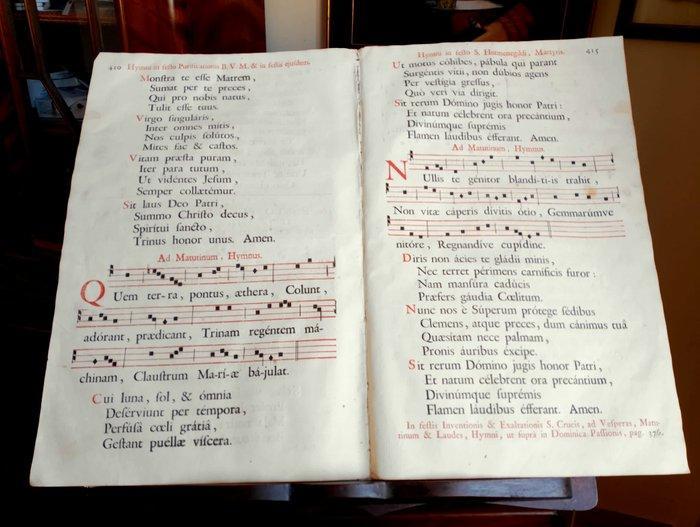 410 Hymni in festo Purificationis B. V. M. & in festis ejusdem.
Monſtra te eſſe Matrem,
Sumat per te preces,
Qui pro nobis natus,
Tulit eſſe tuus.
Virgo ſingularis,
Inter omnes mitis,
Nos culpis ſolútos,
Mites fac & caſtos.
Vitam præſta puram,
Iter para tutum,
Ut videntes Jeſum,
Semper collætémur.
Sit laus Deo Patri,
Summo Chriſto decus,
Spirítui ſancto,
Trinus honor unus. Amen.
Ad Matutinum, Hymnus.
QUem ter-ra, pontus, æthera, Colunt,
adórant, prædicant, Trinam regéntem má-
chinam, Clauſtrum Ma-rí-æ bá-julat.
Cui luna, ſol, & ómnia
Deſérviunt per témpora,
Perfúſa cœli grátia,
Geſtant puéllæ víſcera.
Hymni in feſto S. Hermenegildi, Martyris. 415
Ut motus cóhibes, pábula qui parant
Surgéntis vitii, non dúbios agens
Per veſtígia greſſus,
Quò veri via dírigit.
Sit rerum Dómino jugis honor Patri:
Et natum célebrent ora precántium,
Divinúmque ſuprémis
Flamen láudibus éfferant. Amen.
Ad Matutinum, Hymnus.
NUllis te génitor blandí-ti-is trahit,
Non vitæ cáperis dívitis ótio, Gemmarúmve
nitóre, Regnandíve cupídine.
Diris non ácies te gládii minis,
Nec terret périmens carníficis furor:
Nam manſúra cadúcis
Præfers gáudia Cœlitum.
Nunc nos è Súperum prótege ſédibus
Clemens, atque preces, dum cánimus tuâ
Quæſitam nece palmam,
Pronis áuribus éxcipe.
Sit rerum Dómino jugis honor Patri,
Et natum célebrent ora precántium,
Divinúmque ſuprémis
Flamen láudibus éfferant. Amen.
In feſtis Inventionis & Exaltationis S. Crucis, ad Veſperas, Matu-
tinum & Laudes, Hymni, ut ſuprà in Dominica Paſſionis, pag. 376.